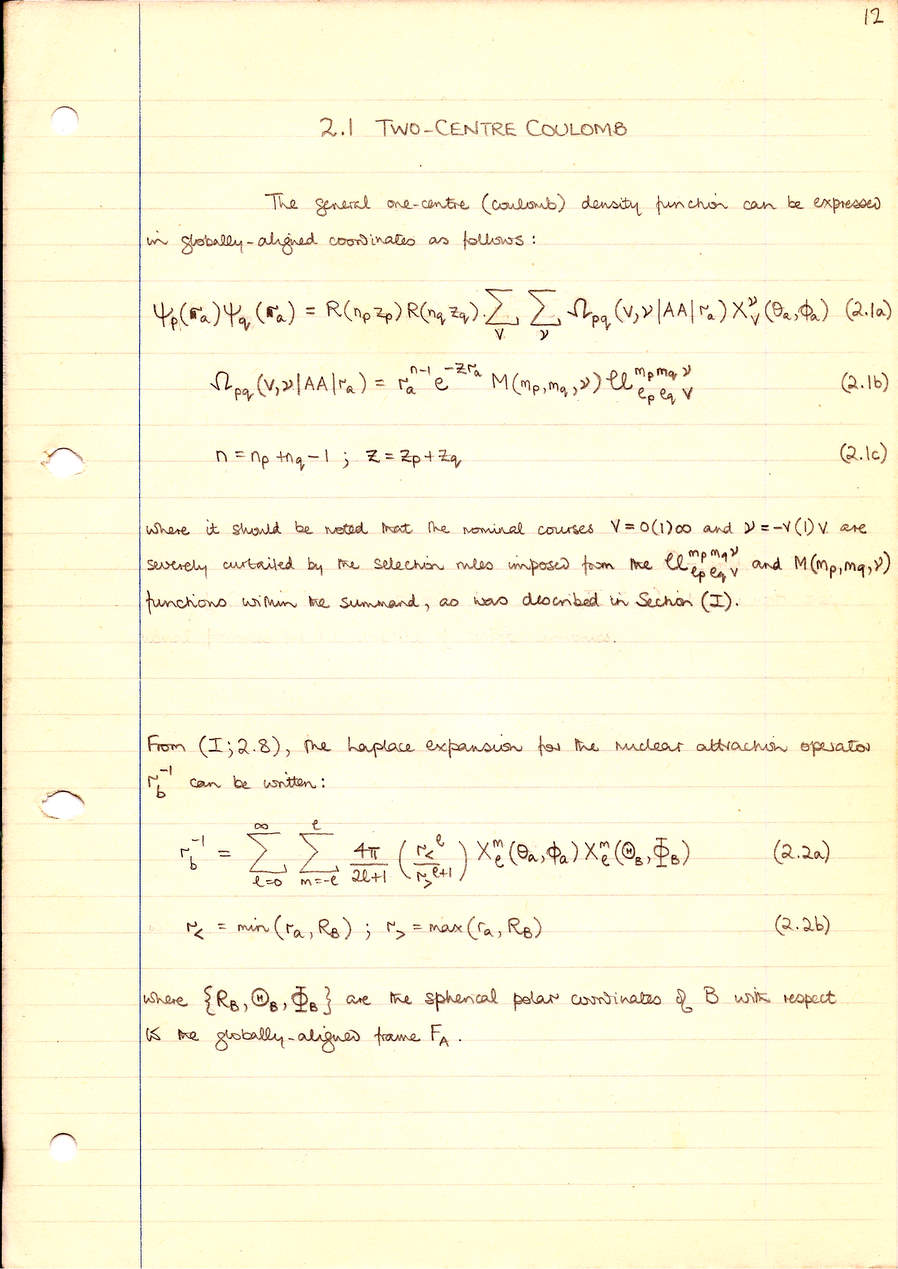 12
2.1 TWO-CENTRE COULOMB
The general one-centre (coulomb) density function can be expressed
in globally-aligned coordinates as follows:
Ψp(ra)Ψq(ra) = R(np zp)R(nq zq).∑V ∑ν Ωpq(V,ν|AA|ra) X_V^ν(θa,ϕa) (2.1a)
Ωpq(V,ν|AA|ra) = ra^{n-1} e^{-zra} M(mp,mq,ν) ll^{mp mq ν}_{lp lq V} (2.1b)
n = np+nq-1 ; z = zp+zq (2.1c)
where it should be noted that the nominal courses V=0(1)∞ and ν=-V(1)V are
severely curtailed by the selection rules imposed from the ll^{mp mq ν}_{lp lq V} and M(mp,mq,ν)
functions within the summand, as was described in Section (I).
From (I;2.8), the Laplace expansion for the nuclear attraction operator
r_b^{-1} can be written:
r_b^{-1} = ∑_{l=0}^{∞} ∑_{m=-l}^{l} 4π/(2l+1) (r_<^l / r_>^{l+1}) X_l^m(θa,ϕa) X_l^m(Θ_B,Φ_B) (2.2a)
r_< = min(ra,R_B) ; r_> = max(ra,R_B) (2.2b)
where {R_B,Θ_B,Φ_B} are the spherical polar coordinates of B with respect
to the globally-aligned frame F_A.